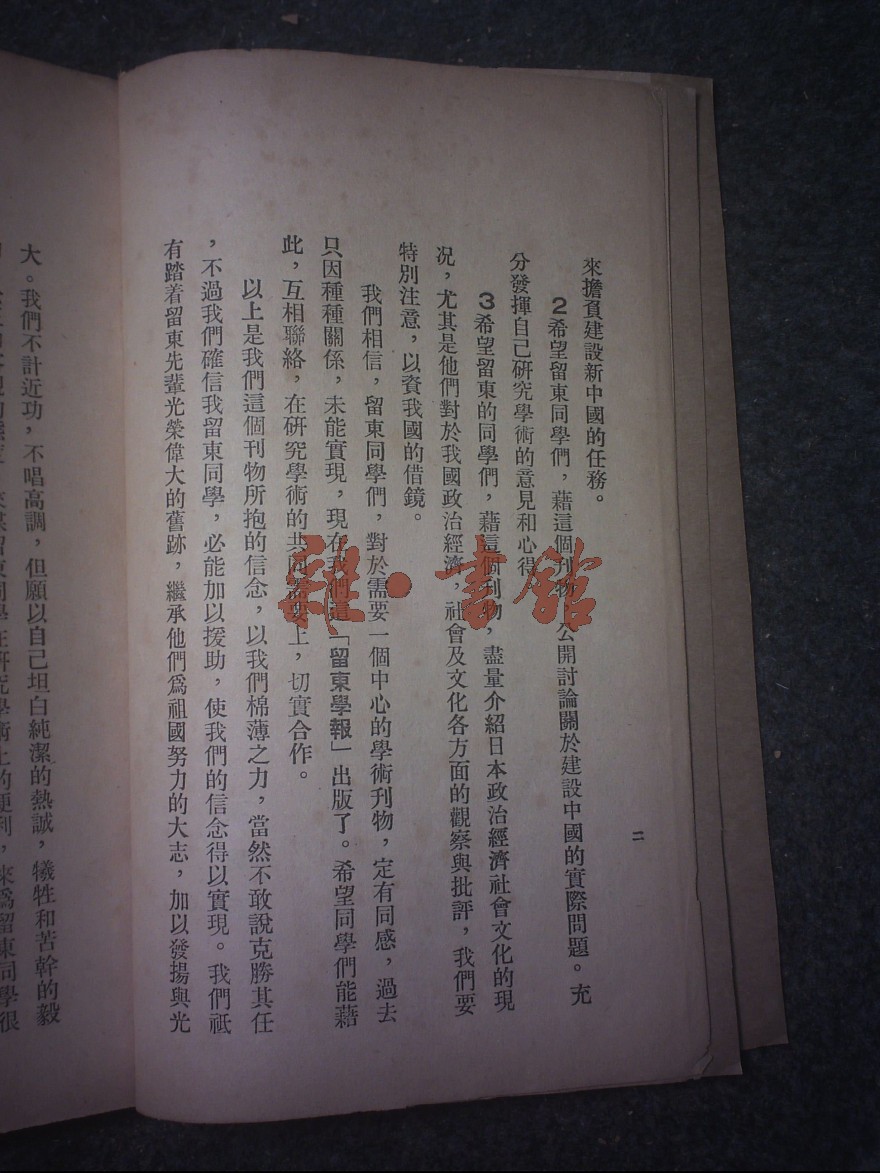 來擔負建設新中國的任務。
2希望留東同學們，藉這個刊物，公開討論關於建設中國的實際問題。充
分發揮自己研究學術的意見和心得
3希望留東的同學們，藉這個刊物，盡量介紹日本政治經濟社會文化的現
況，尤其是他們對於我國政治經濟，社會及文化各方面的觀察與批評，我們要
特別注意，以資我國的借鏡。
我們相信，留東同學們，對於需要一個中心的學術刊物，定有同感，過去
只因種種關係，未能實現，現在我們這「留東學報」出版了。希望同學們能藉
此，互相聯絡，在研究學術的共同需要上，切實合作。
以上是我們這個刊物所抱的信念，以我們棉薄之力，當然不敢說克勝其任
，不過我們確信我留東同學，必能加以援助，使我們的信念得以實現。我們祗
有踏着留東先輩光榮偉大的舊跡，繼承他們爲祖國努力的大志，加以發揚與光
二
大。我們不計近功，不唱高調，但願以自己坦白純潔的熱誠，犧牲和苦幹的毅
來謀留東同學在研究學術上的便利，來爲留東同學很
雜·書館